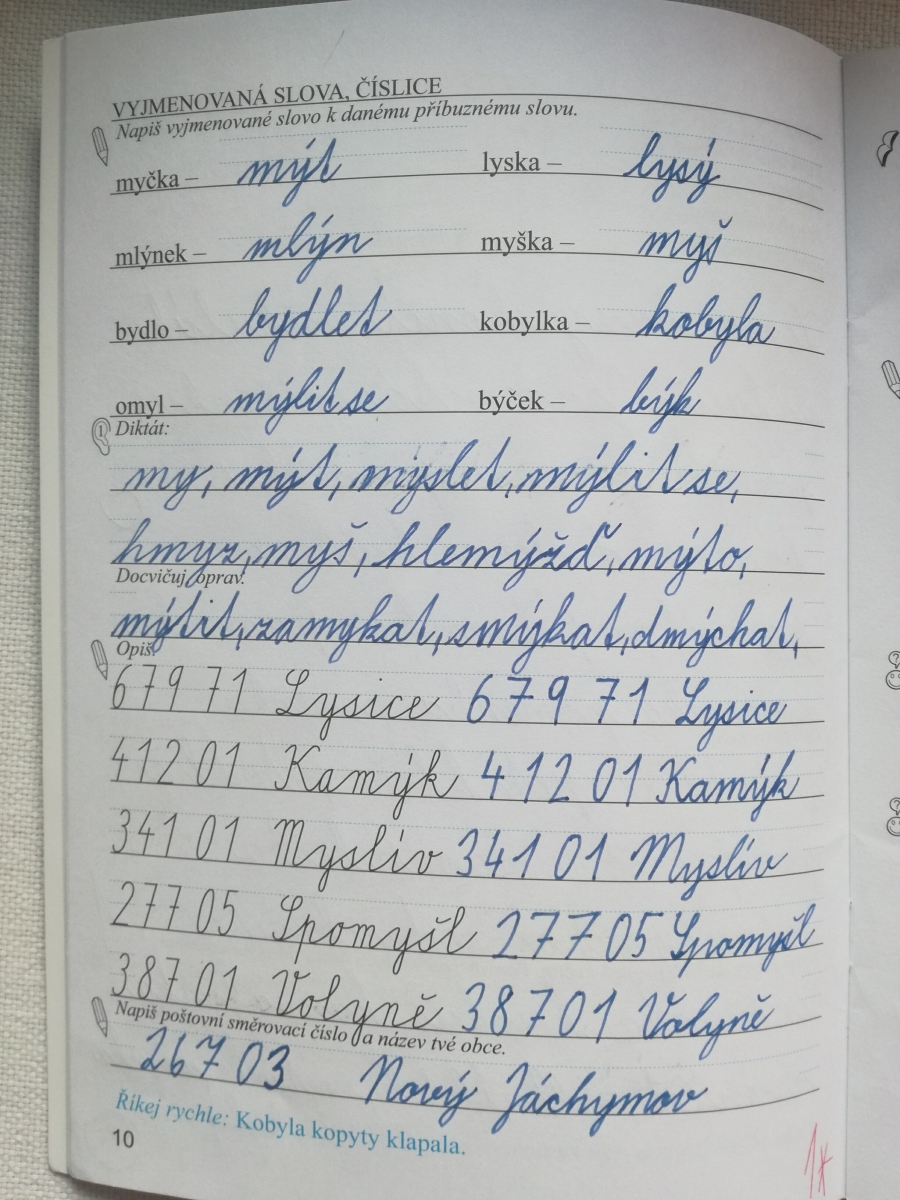 VYJMENOVANÁ SLOVA, ČÍSLICE
Napiš vyjmenované slovo k danému příbuznému slovu.
myčka – mýt lyska – lysý
mlýnek – mlýn myška – myš
bydlo – bydlet kobylka – kobyla
omyl – mýlit se býček – býk
1 Diktát:
my, mýt, myslet, mýlit se,
hmyz, myš, hlemýžď, mýto,
Docvičuj, oprav.
mýtit, zamykat, smýkat, dmýchat,
Opiš.
679 71 Lysice 679 71 Lysice
412 01 Kamýk 412 01 Kamýk
341 01 Myslív 341 01 Myslív
277 05 Spomyšl 277 05 Spomyšl
387 01 Volyně 387 01 Volyně
Napiš poštovní směrovací číslo a název tvé obce.
267 03 Nový Jáchymov
Říkej rychle: Kobyla kopyty klapala.
10
1*